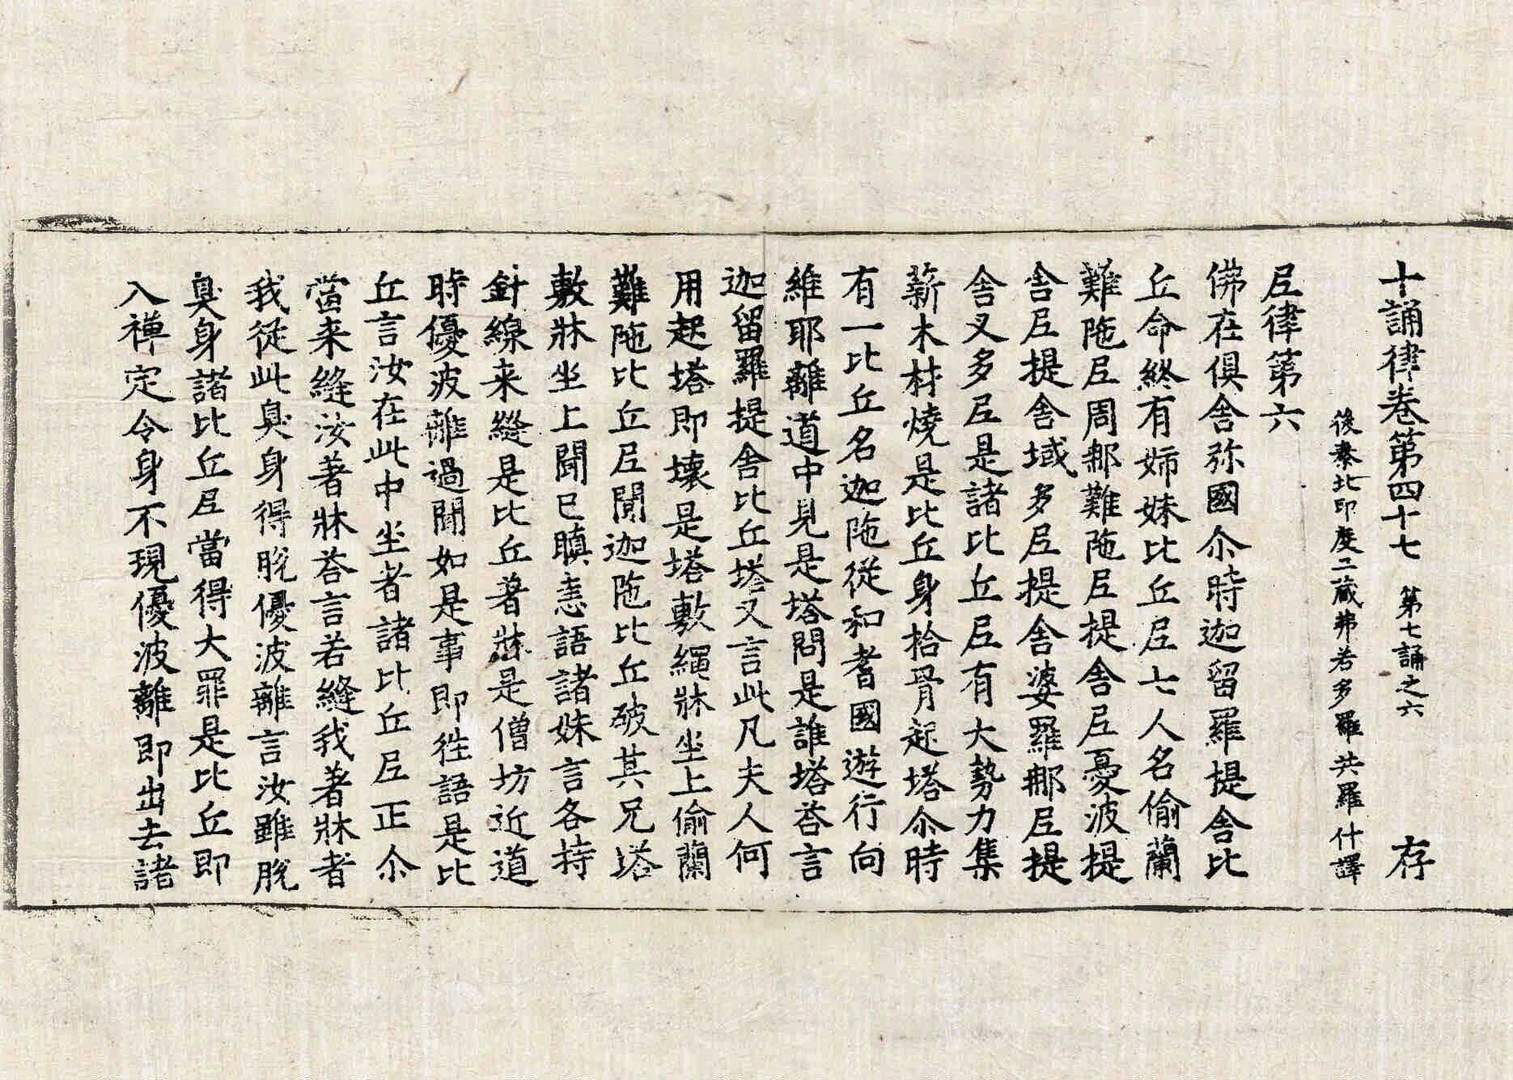 十誦律卷第四十七 第七誦之六 存
後秦北印度三藏弗若多羅共羅什譯
尼律第六
佛在俱舍弥國尒時迦留羅提舍比
丘命終有姉妹比丘尼七人名偷蘭
難陁尼周那難陁尼提舍尼憂波提
舍尼提舍域多尼提舍婆羅那尼提
舍叉多尼是諸比丘尼有大勢力集
薪木材燒是比丘身拾骨起塔尒時
有一比丘名迦陁從和耆國遊行向
維耶離道中見是塔問是誰塔荅言
迦留羅提舍比丘塔又言此凡夫人何
用起塔即壞是塔敷繩牀坐上偷蘭
難陁比丘尼聞迦陁比丘破其兄塔
敷牀坐上聞已瞋恚語諸妹言各持
針線来縫是比丘著牀是僧坊近道
時優波離過聞如是事即徃語是比
丘言汝在此中坐者諸比丘尼正尒
當来縫汝著牀荅言若縫我著牀者
我從此臭身得脫優波離言汝雖脫
臭身諸比丘尼當得大罪是比丘即
入禪定令身不現優波離即出去諸